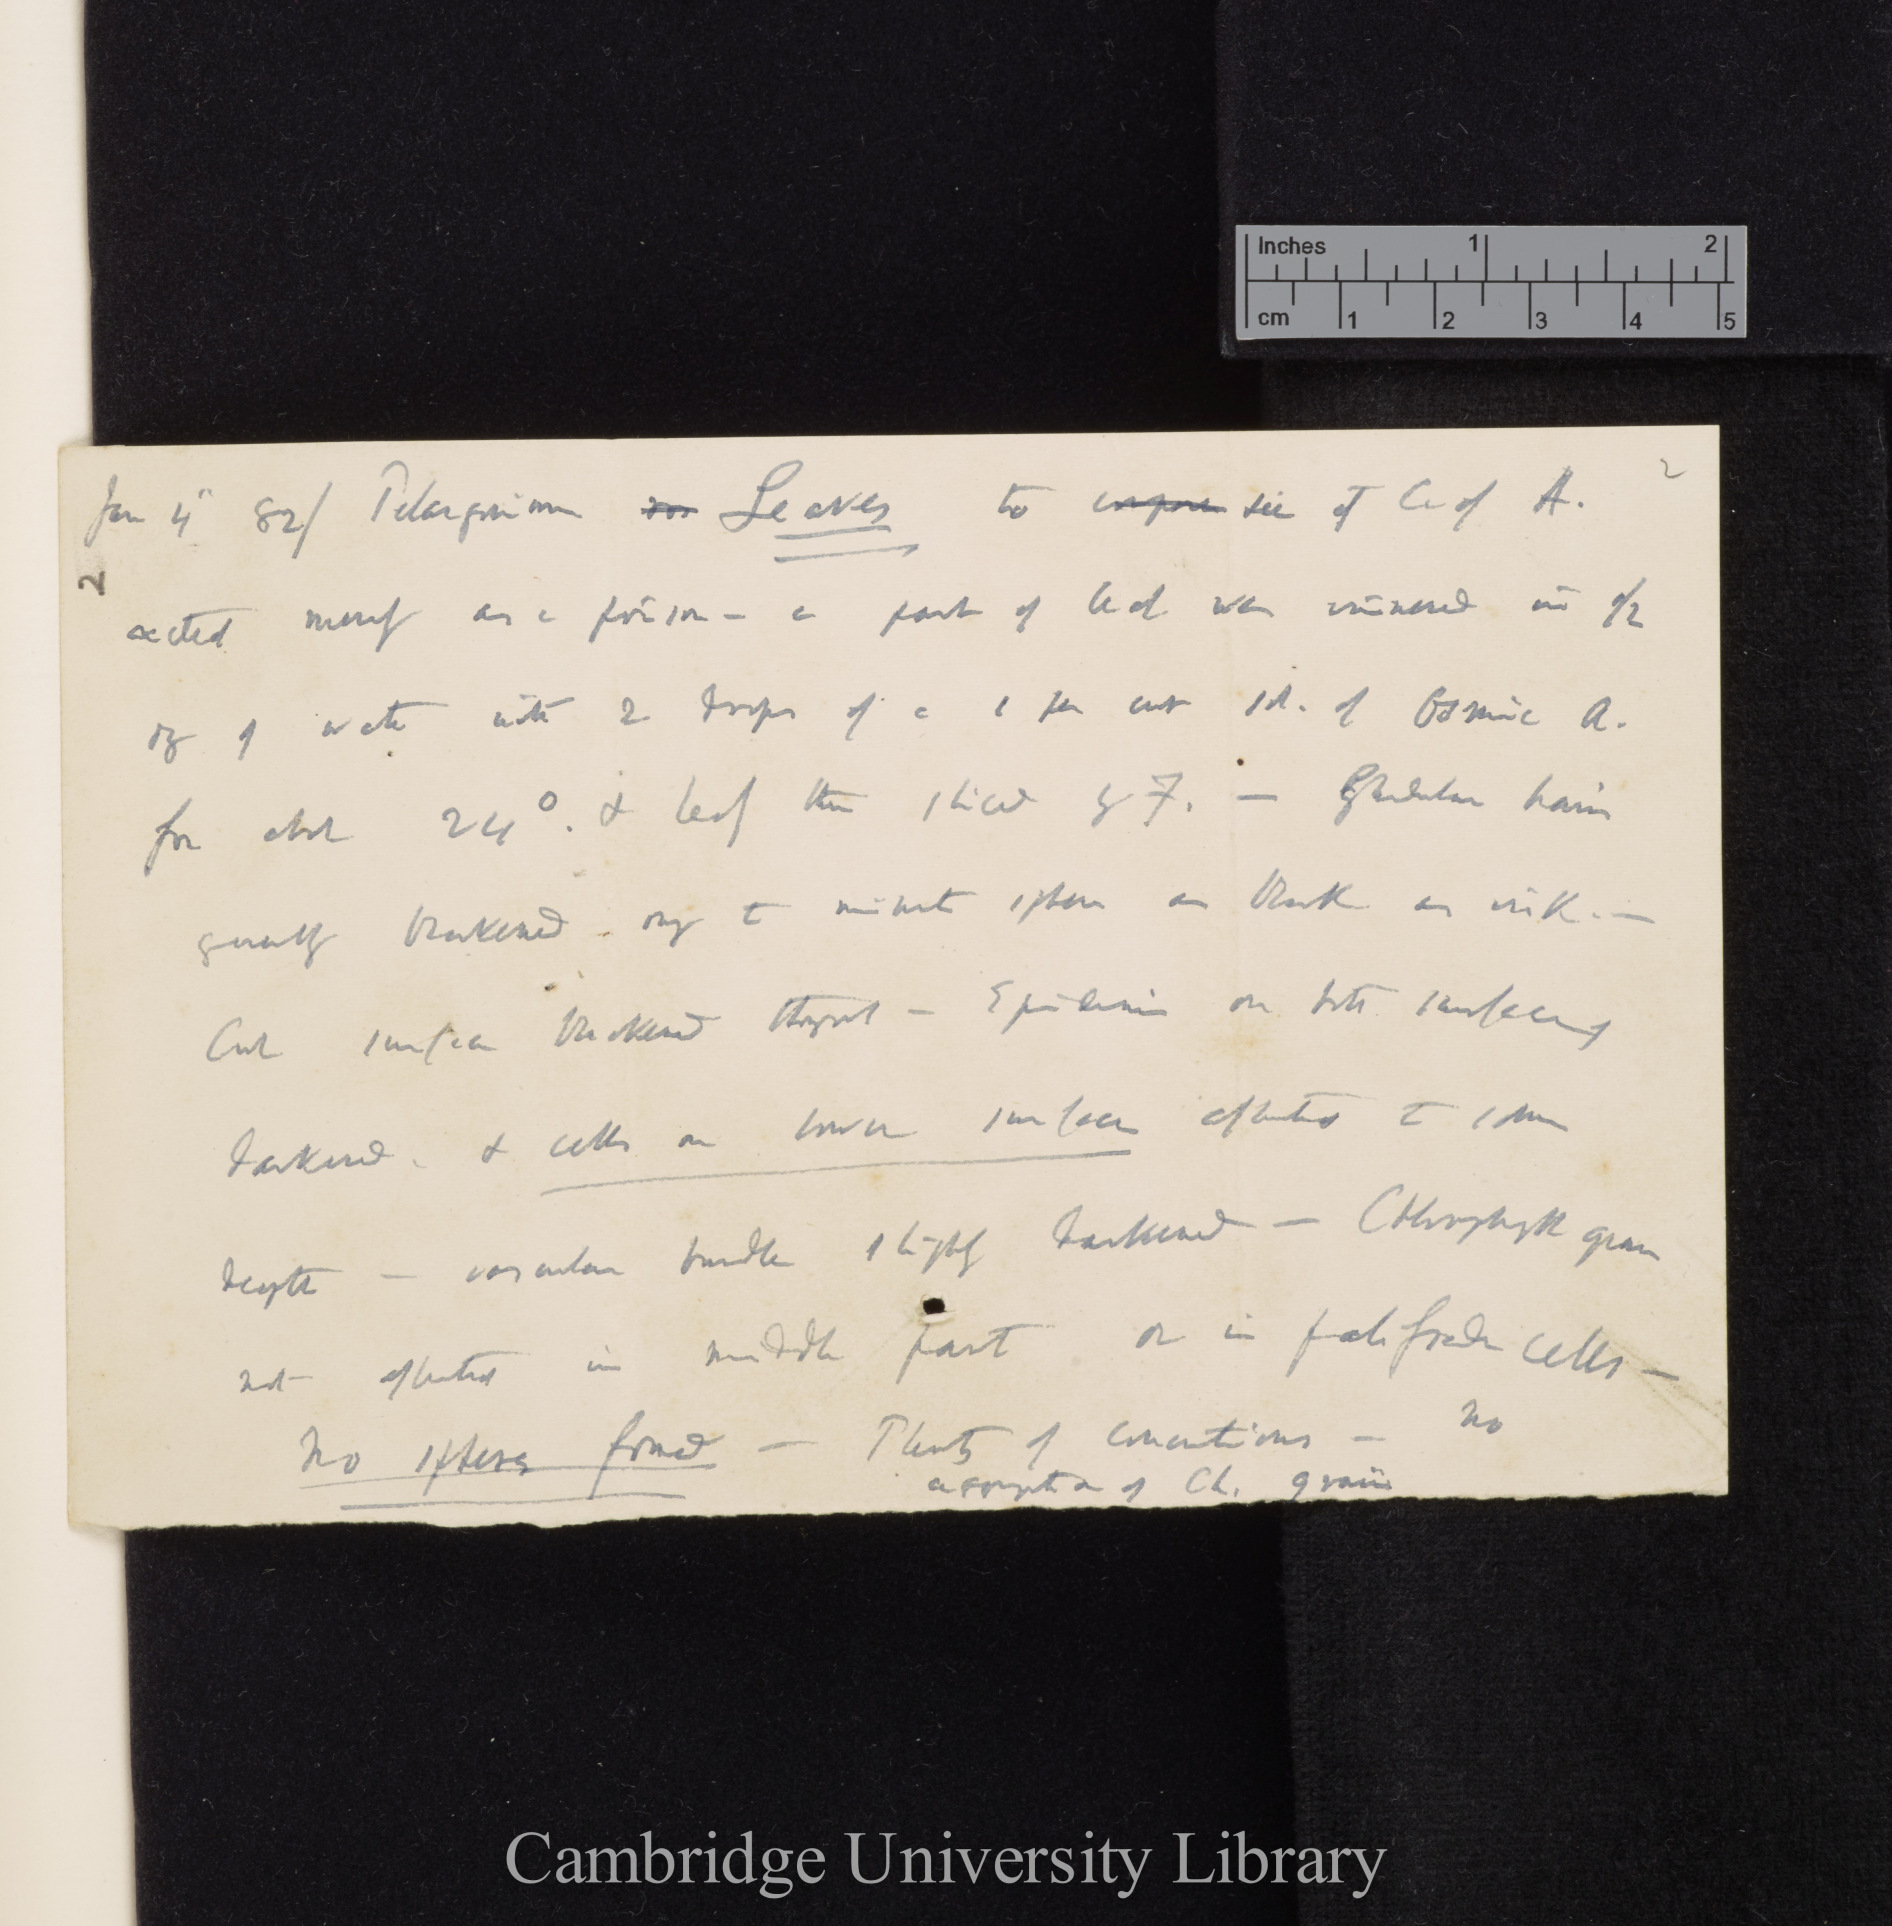 Inches 1 2
cm 1 2 3 4 5
2
Jan 4" 82/ Pelargonium Leaves to see if C. of A.
2
acted merely as a poison — a part of leaf was immersed in 1/2
oz of water with 2 drops of a 1 per cent sol. of Osmic A.
for about 24°. & leaf then sliced by F. — Glandular hairs
greatly blackened, ong to minute spheres as black as ink. —
Cut surface blackened — Epidermis on both surfaces
darkened. & cells on lower surface affected to some
depth — vascular bundle slightly darkened — Chlorophyll grains
not affected in middle part or in palisade cells —
No spheres formed — Plenty of concretions — no
of Ch. grains
Cambridge University Library